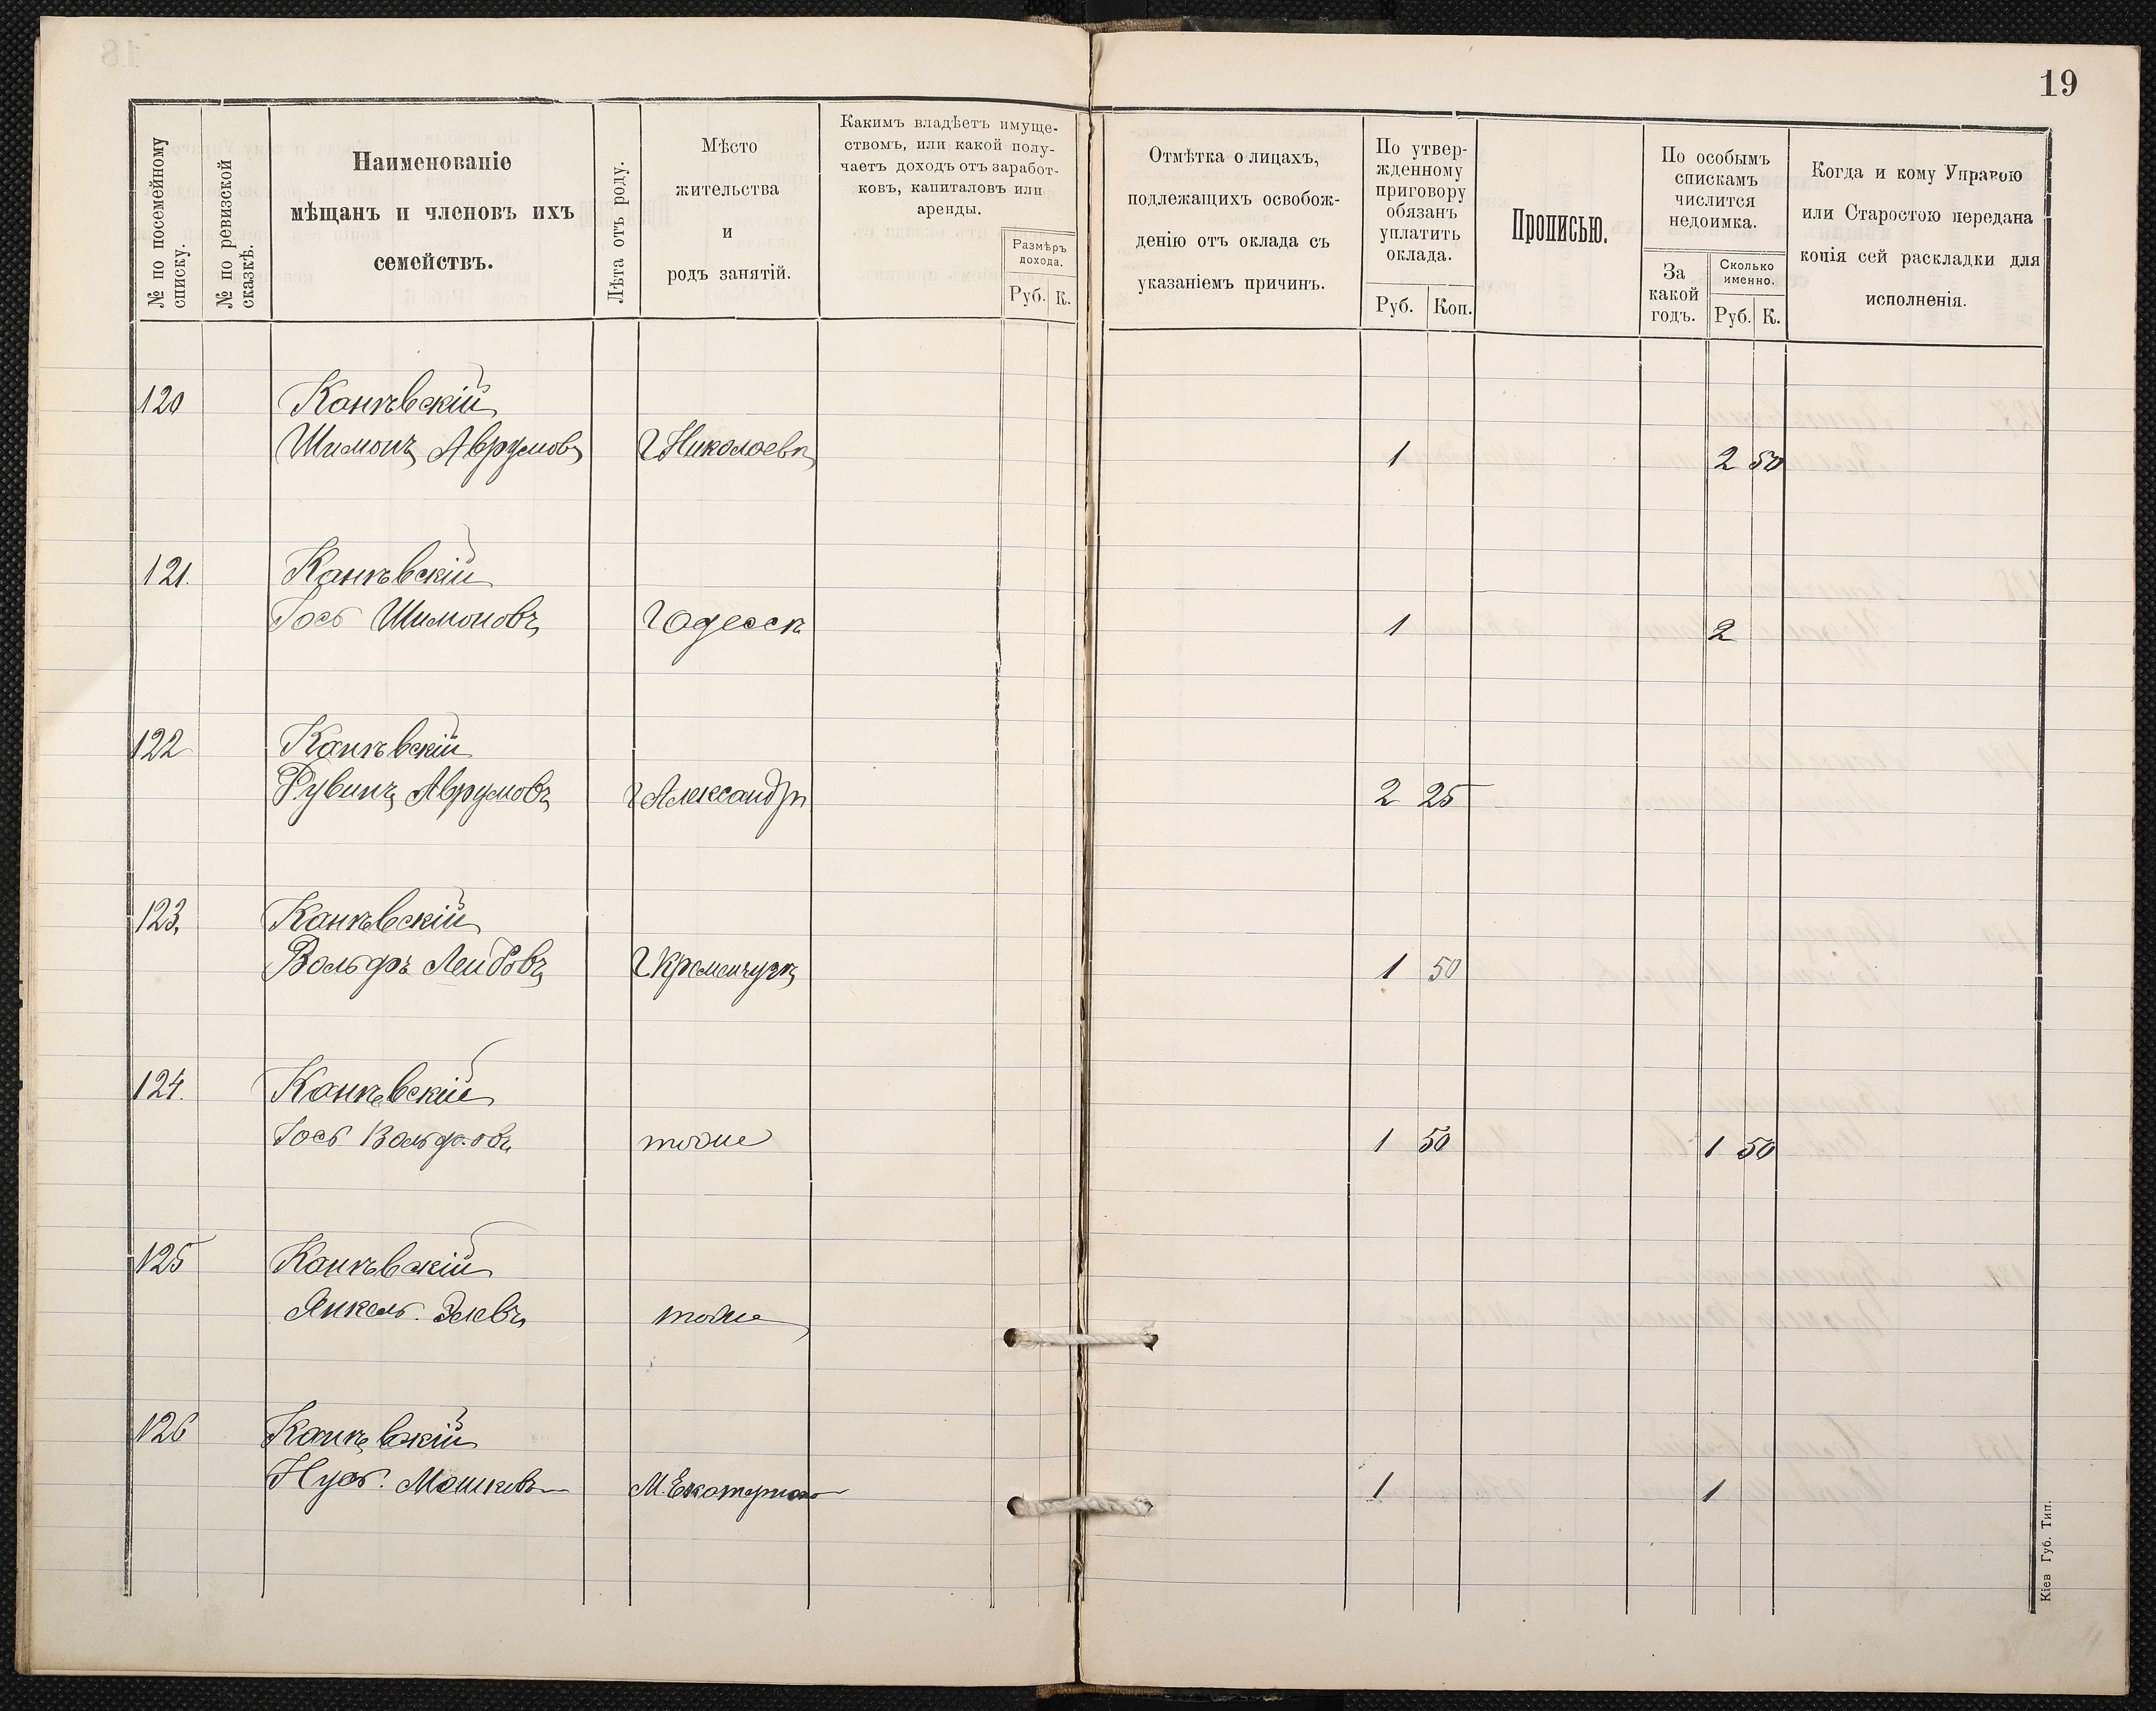 19
№ по посемейному
списку.
№ по ревизской
сказкѣ.
Наименованіе
мѣщанъ и членовъ ихъ
семействъ.
Лѣта отъ роду.
Мѣсто
жительства
и
родъ занятій.
Какимъ владѣетъ имуще-
ствомъ, или какой полу-
чаетъ доходъ отъ заработ-
ковъ, капиталовъ или
аренды.
Размѣръ
дохода.
Руб. К.
Отмѣтка о лицахъ,
подлежащихъ освобож-
денію отъ оклада съ
указаніемъ причинъ.
По утвер-
жденному
приговору
обязанъ
уплатить
оклада.
Руб. Коп.
Прописью.
По особымъ
спискамъ
числится
недоимка.
За
какой
годъ.
Сколько
именно.
Руб. К.
Когда и кому Управою
или Старостою передана
копія сей раскладки для
исполненія.
120 Каневскій
Шимонъ Аврумовъ г Николаевъ 1 2 50
121. Каневскій
Іось Шимоновъ г Одесск 1 2
122 Каневскій
Рувинъ Аврумовъ г Александр 2 25
123. Каневскій
Вольфъ Лейбовъ г Кременчугъ 1 50
124. Каневскій
Іось Вольфовъ тоже 1 50 1 50
125 Каневскій
Янкель Элевъ тоже
126 Каневскій
Мошков М. 1 1
Кіев Губ. Тип.